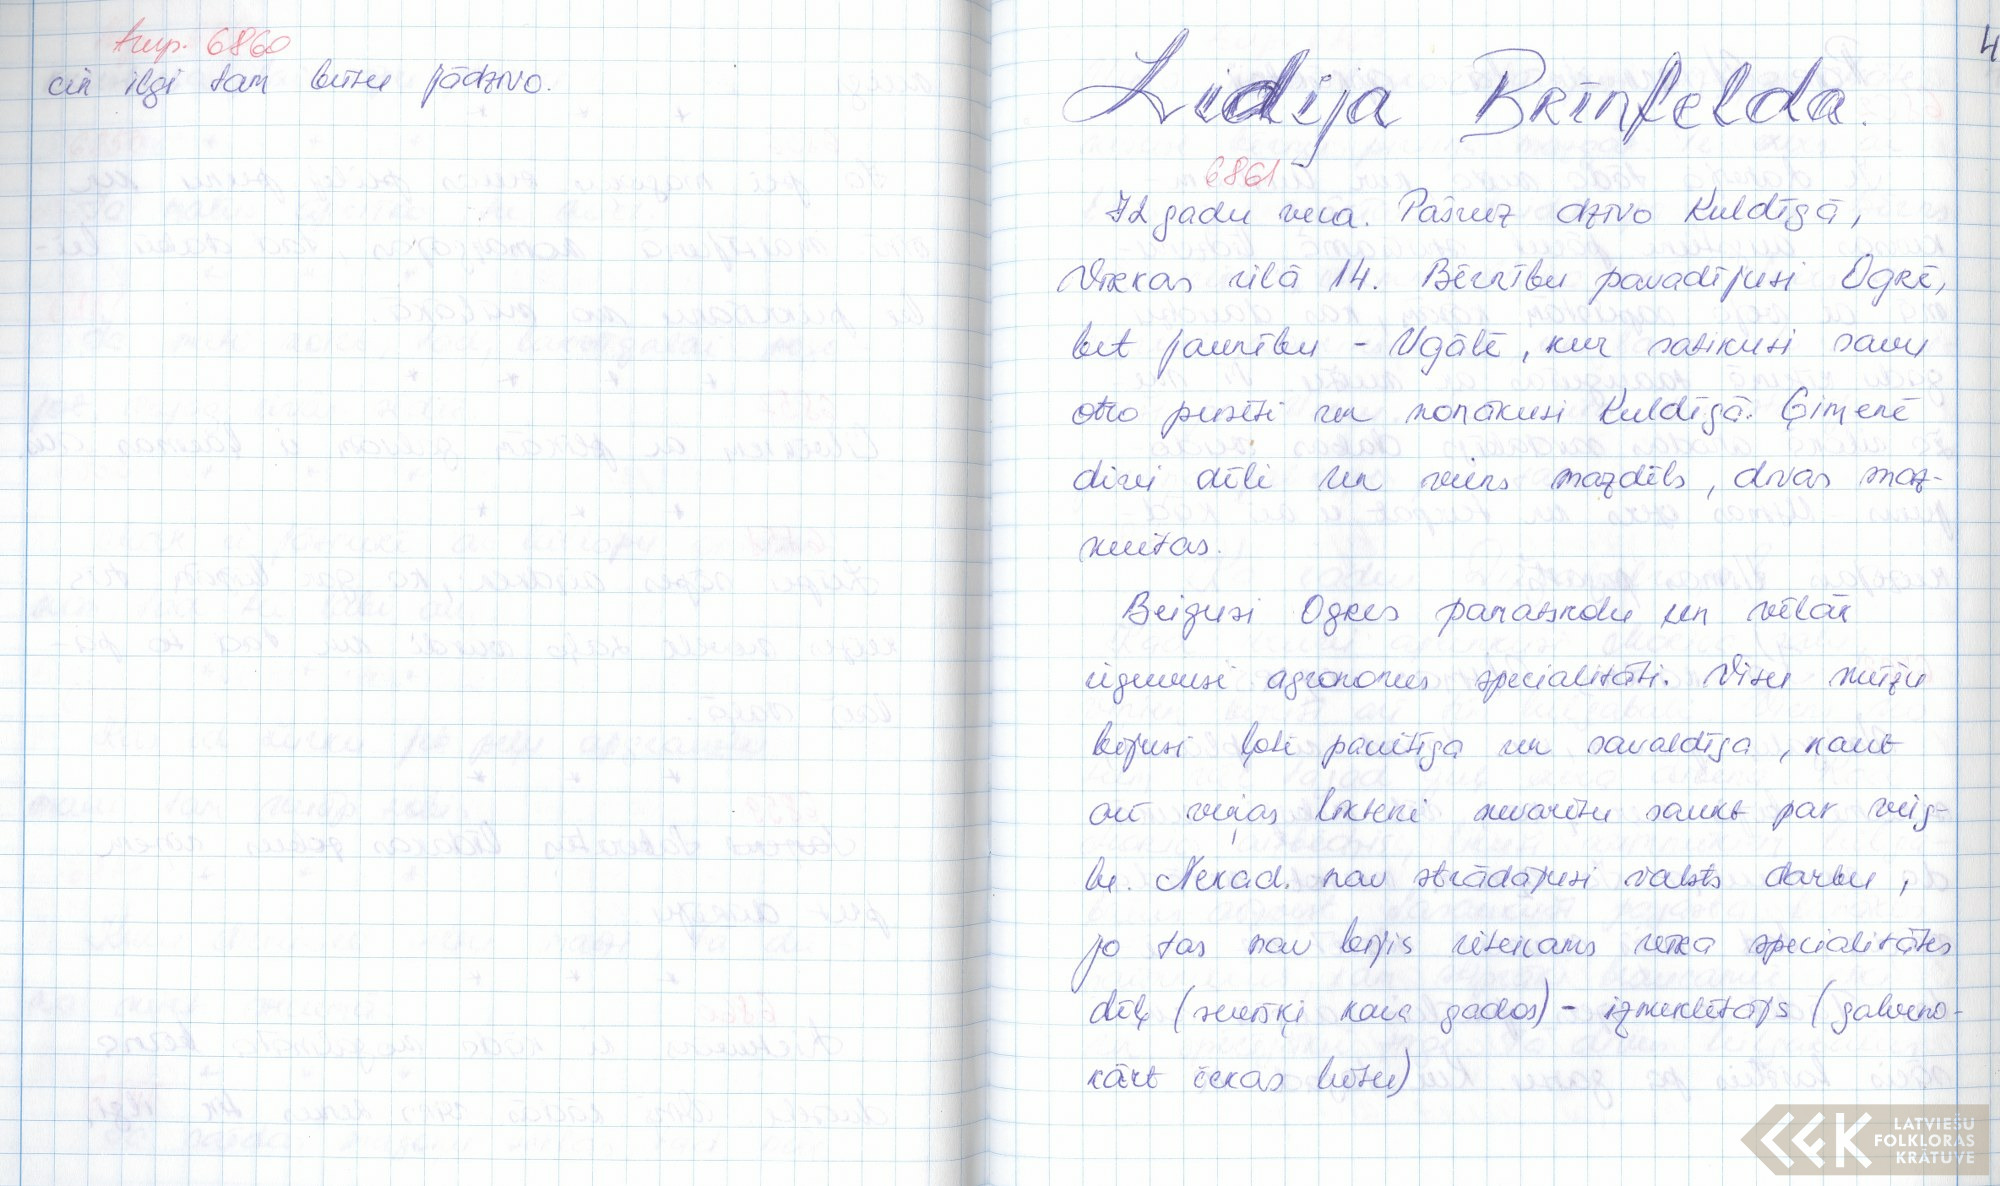 turp. 6860
cik ilgi tam būtu jādzīvo.
4
Lidija Brīnfelda.
6861
72 gadu veca. Pašreiz dzīvo Kuldīgā,
Vīkas ielā 14. Bērnību pavadījusi Ogrē,
bet jaunību - Ugālē, kur satikusi savu
otro pusīti un nonākusi Kuldīgā. Ģimenē
divi dēli un viens mazdēls, divas maz-
meitas.
Beigusi Ogres pamatskolu un vēlāk
ieguvusi agronomes specialitāti. Visu mūžu
bijusi ļoti pacietīga un savaldīga, kaut
arī viņas likteni nevarētu saukt par vieg-
lu. Nekad nav strādājusi valsts darbu,
jo tas nav bijis ieteicams vīra specialitātes
dēļ (sevišķi kara gados) - izmeklētājs (galveno-
kārt čekas lietu)
LATVIEŠU
FOLKLORAS
KRĀTUVE